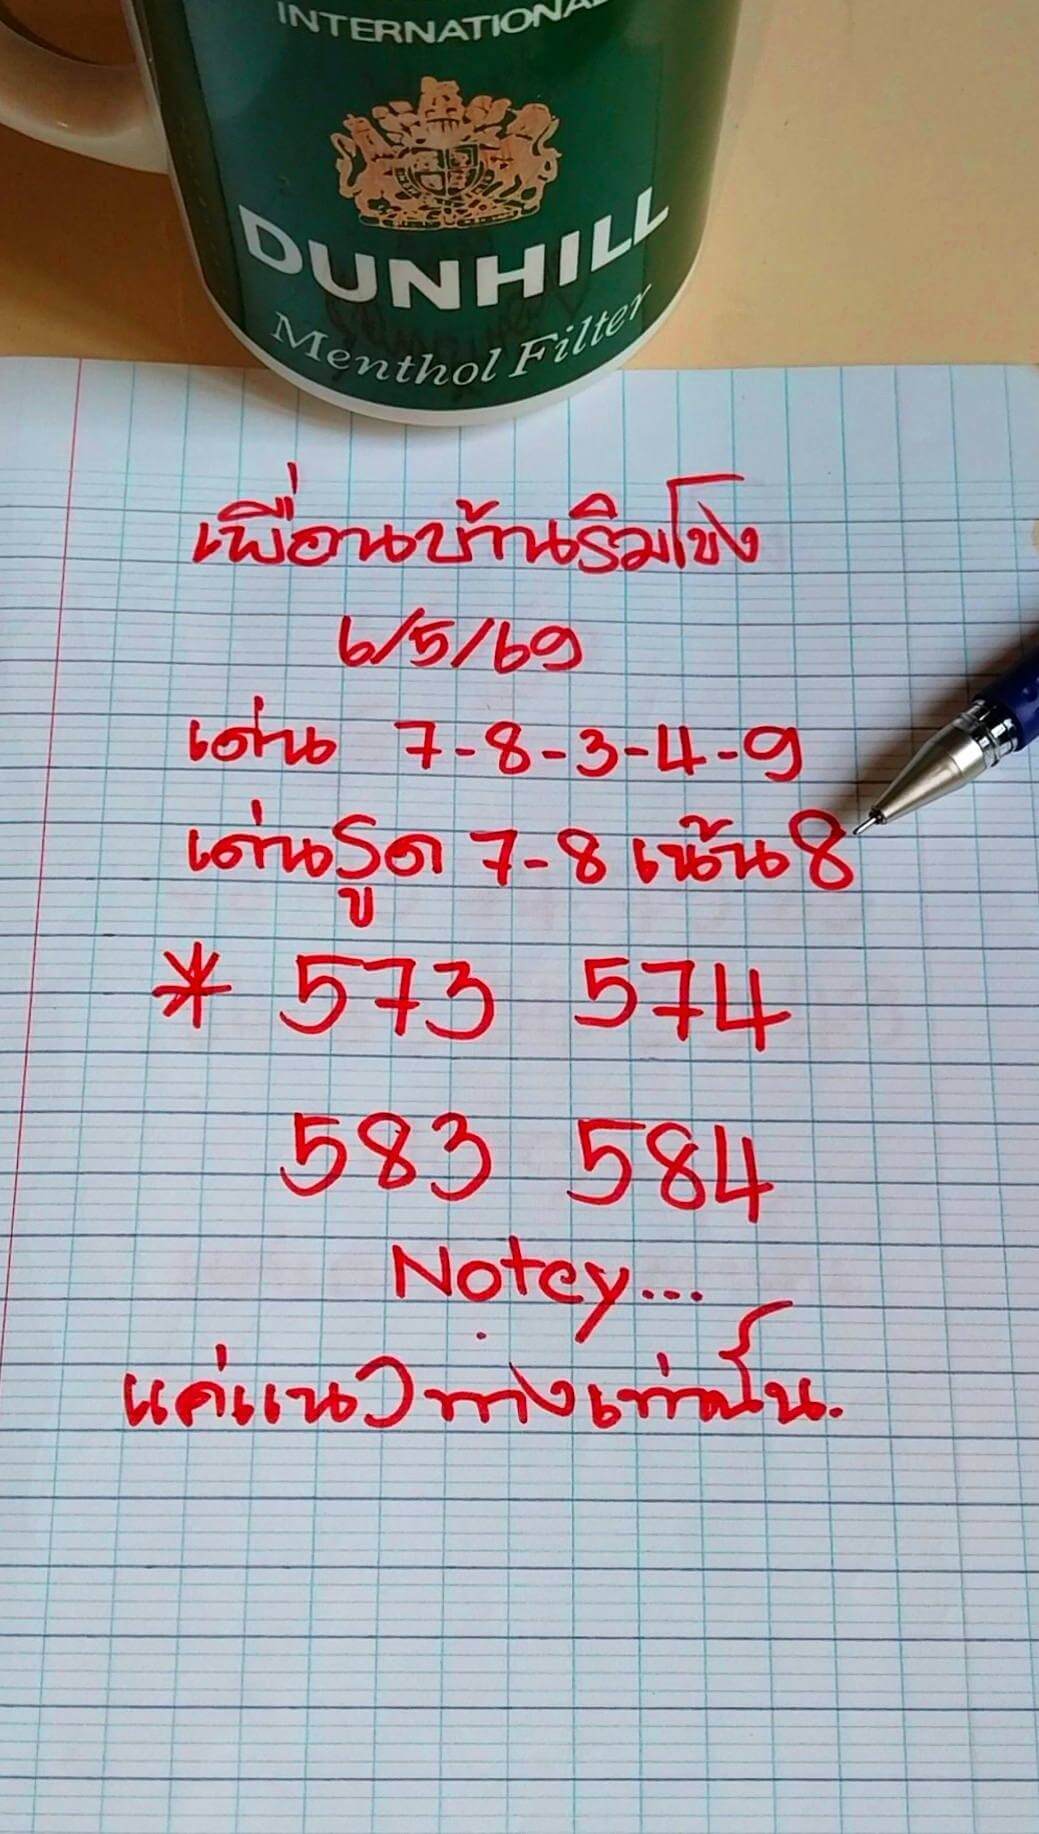 INTERNATIONAL
DUNHILL
Menthol Filter
เพื่อนบ้านริมโขง
6/5/69
เด่น 7-8-3-4-9
เด่นรูด 7-8 เน้น 8
* 573 574
583 584
Notey...
แค่แนวทางเท่านั้น.